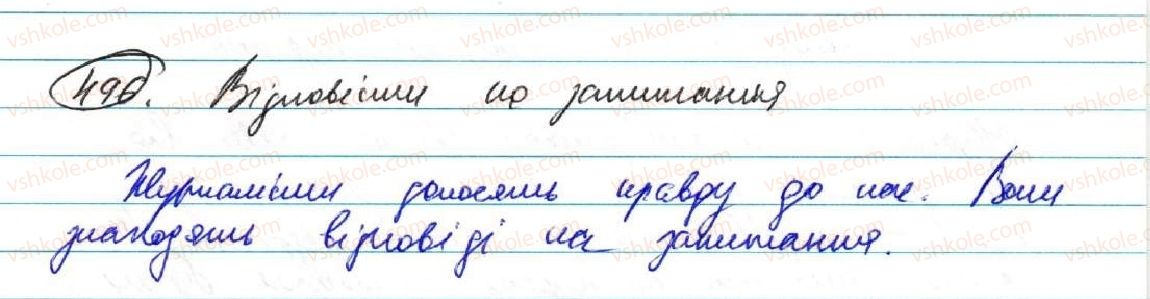 496. Відповісти на запитання
Журналісти доносять правду до нас. Вони
знаходять відповіді на запитання.